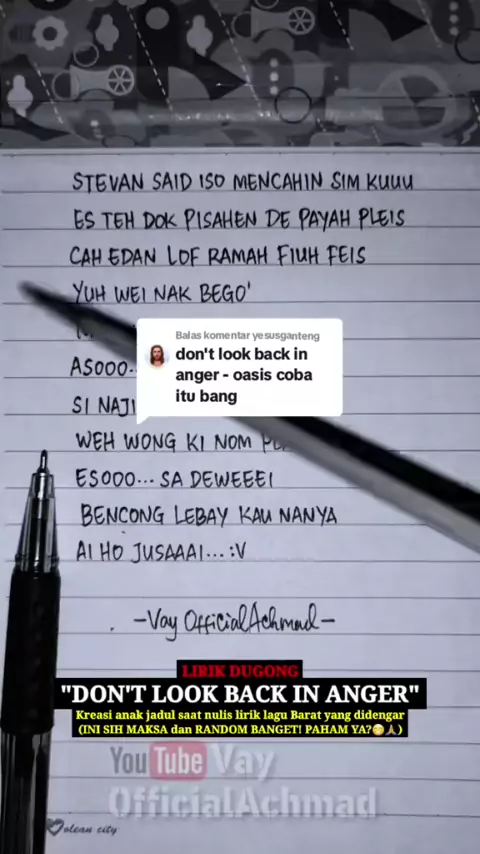 STEVAN SAID ISO MENCAHIN SIM KUUU
ES TEH DOK PISAHEN DE PAYAH PLEIS
CAH EDAN LOF RAMAH FIUH FEIS
YUH WEI NAK BEGO'
Balas komentar yesusganteng
don't look back in
anger - oasis coba
itu bang
ASOOO..
SI NAJI
WEH WONG KI NOM
ESOOO... SA DEWEEEI
BENCONG LEBAY KAU NANYA
AI HO JUSAAAI...:V
-Vay OfficialAchmad-
LIRIK DUGONG
"DON'T LOOK BACK IN ANGER"
Kreasi anak jadul saat nulis lirik lagu Barat yang didengar
(INI SIH MAKSA dan RANDOM BANGET! PAHAM YA?😁🙏)
YouTube Vay
OfficialAchmad
olean city